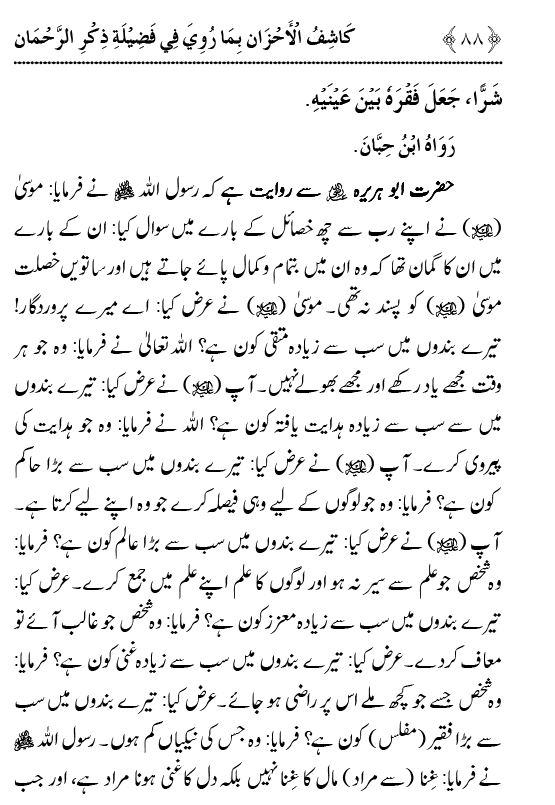 ﴿۸۸﴾ كَاشِفُ الْأَحْزَانِ بِمَا رُوِيَ فِي فَضِيْلَةِ ذِكْرِ الرَّحْمَانِ
شَرًّا، جَعَلَ فَقْرَهٗ بَيْنَ عَيْنَيْهِ.
رَوَاهُ ابْنُ حِبَّانَ.
حضرت ابو ہریرہ رضی اللہ عنہ سے روایت ہے کہ رسول اللہ ﷺ نے فرمایا: موسیٰ
(علیہ السلام) نے اپنے رب سے چھ خصائل کے بارے میں سوال کیا: ان کے بارے
میں ان کا گمان تھا کہ وہ ان میں بتمام و کمال پائے جاتے ہیں اور ساتویں خصلت
موسیٰ (علیہ السلام) کو پسند نہ تھی۔ موسیٰ (علیہ السلام) نے عرض کیا: اے میرے پروردگار!
تیرے بندوں میں سب سے زیادہ متقی کون ہے؟ اللہ تعالیٰ نے فرمایا: وہ جو ہر
وقت مجھے یاد رکھے اور مجھے بھولے نہیں۔ آپ (علیہ السلام) نے عرض کیا: تیرے بندوں
میں سے سب سے زیادہ ہدایت یافتہ کون ہے؟ اللہ نے فرمایا: وہ جو ہدایت کی
پیروی کرے۔ آپ (علیہ السلام) نے عرض کیا: تیرے بندوں میں سب سے بڑا حاکم
کون ہے؟ فرمایا: وہ جو لوگوں کے لیے وہی فیصلہ کرے جو وہ اپنے لیے کرتا ہے۔
آپ (علیہ السلام) نے عرض کیا: تیرے بندوں میں سب سے بڑا عالم کون ہے؟ فرمایا:
وہ شخص جو علم سے سیر نہ ہو اور لوگوں کا علم اپنے علم میں جمع کرے۔ عرض کیا:
تیرے بندوں میں سب سے زیادہ معزز کون ہے؟ فرمایا: وہ شخص جو غالب آئے تو
معاف کر دے۔ عرض کیا: تیرے بندوں میں سب سے زیادہ غنی کون ہے؟ فرمایا:
وہ شخص جسے جو کچھ ملے اس پر راضی ہو جائے۔ عرض کیا: تیرے بندوں میں سب
سے بڑا فقیر (مفلس) کون ہے؟ فرمایا: وہ جس کی نیکیاں کم ہوں۔ رسول اللہ ﷺ
نے فرمایا: غِنا (سے مراد) مال کا غِنا نہیں بلکہ دل کا غنی ہونا مراد ہے، اور جب